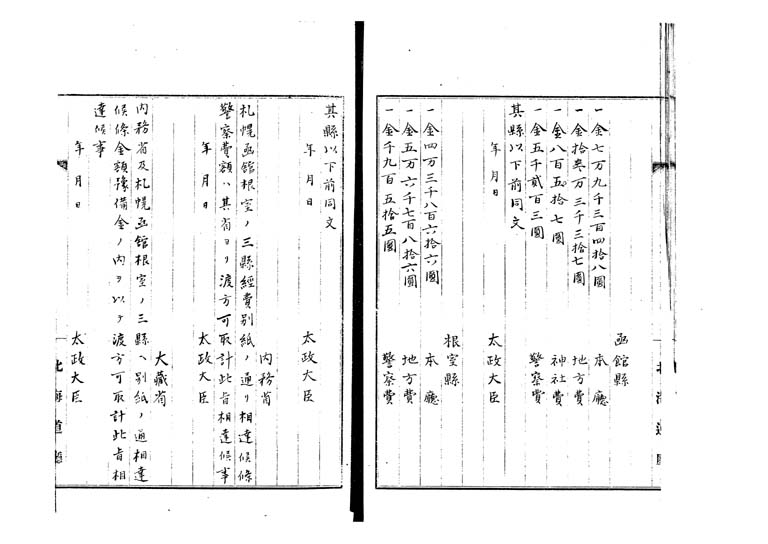 函館縣
一金七万九千三百四拾八圓 本廳
一金拾叁万三千三拾七圓 地方費
一金八百五拾七圓 神社費
一金五千貳百三圓 警察費
其縣以下前同文
年月日 太政大臣
根室縣
一金四万三千八百六拾六圓 本廳
一金五万六千七百八拾六圓 地方費
一金千九百五拾五圓 警察費
其縣以下前同文
年月日 太政大臣
内務省
札幌函館根室ノ三縣經費別紙ノ通リ相達候條
警察費額ハ其省ヨリ渡方可取計此旨相達候事
年月日 太政大臣
大藏省
内務省及札幌函館根室ノ三縣ヘ別紙ノ通相達
候條金額豫備金ノ内ヲ以テ渡方可取計此旨相
達候事
年月日 太政大臣
北海道廳